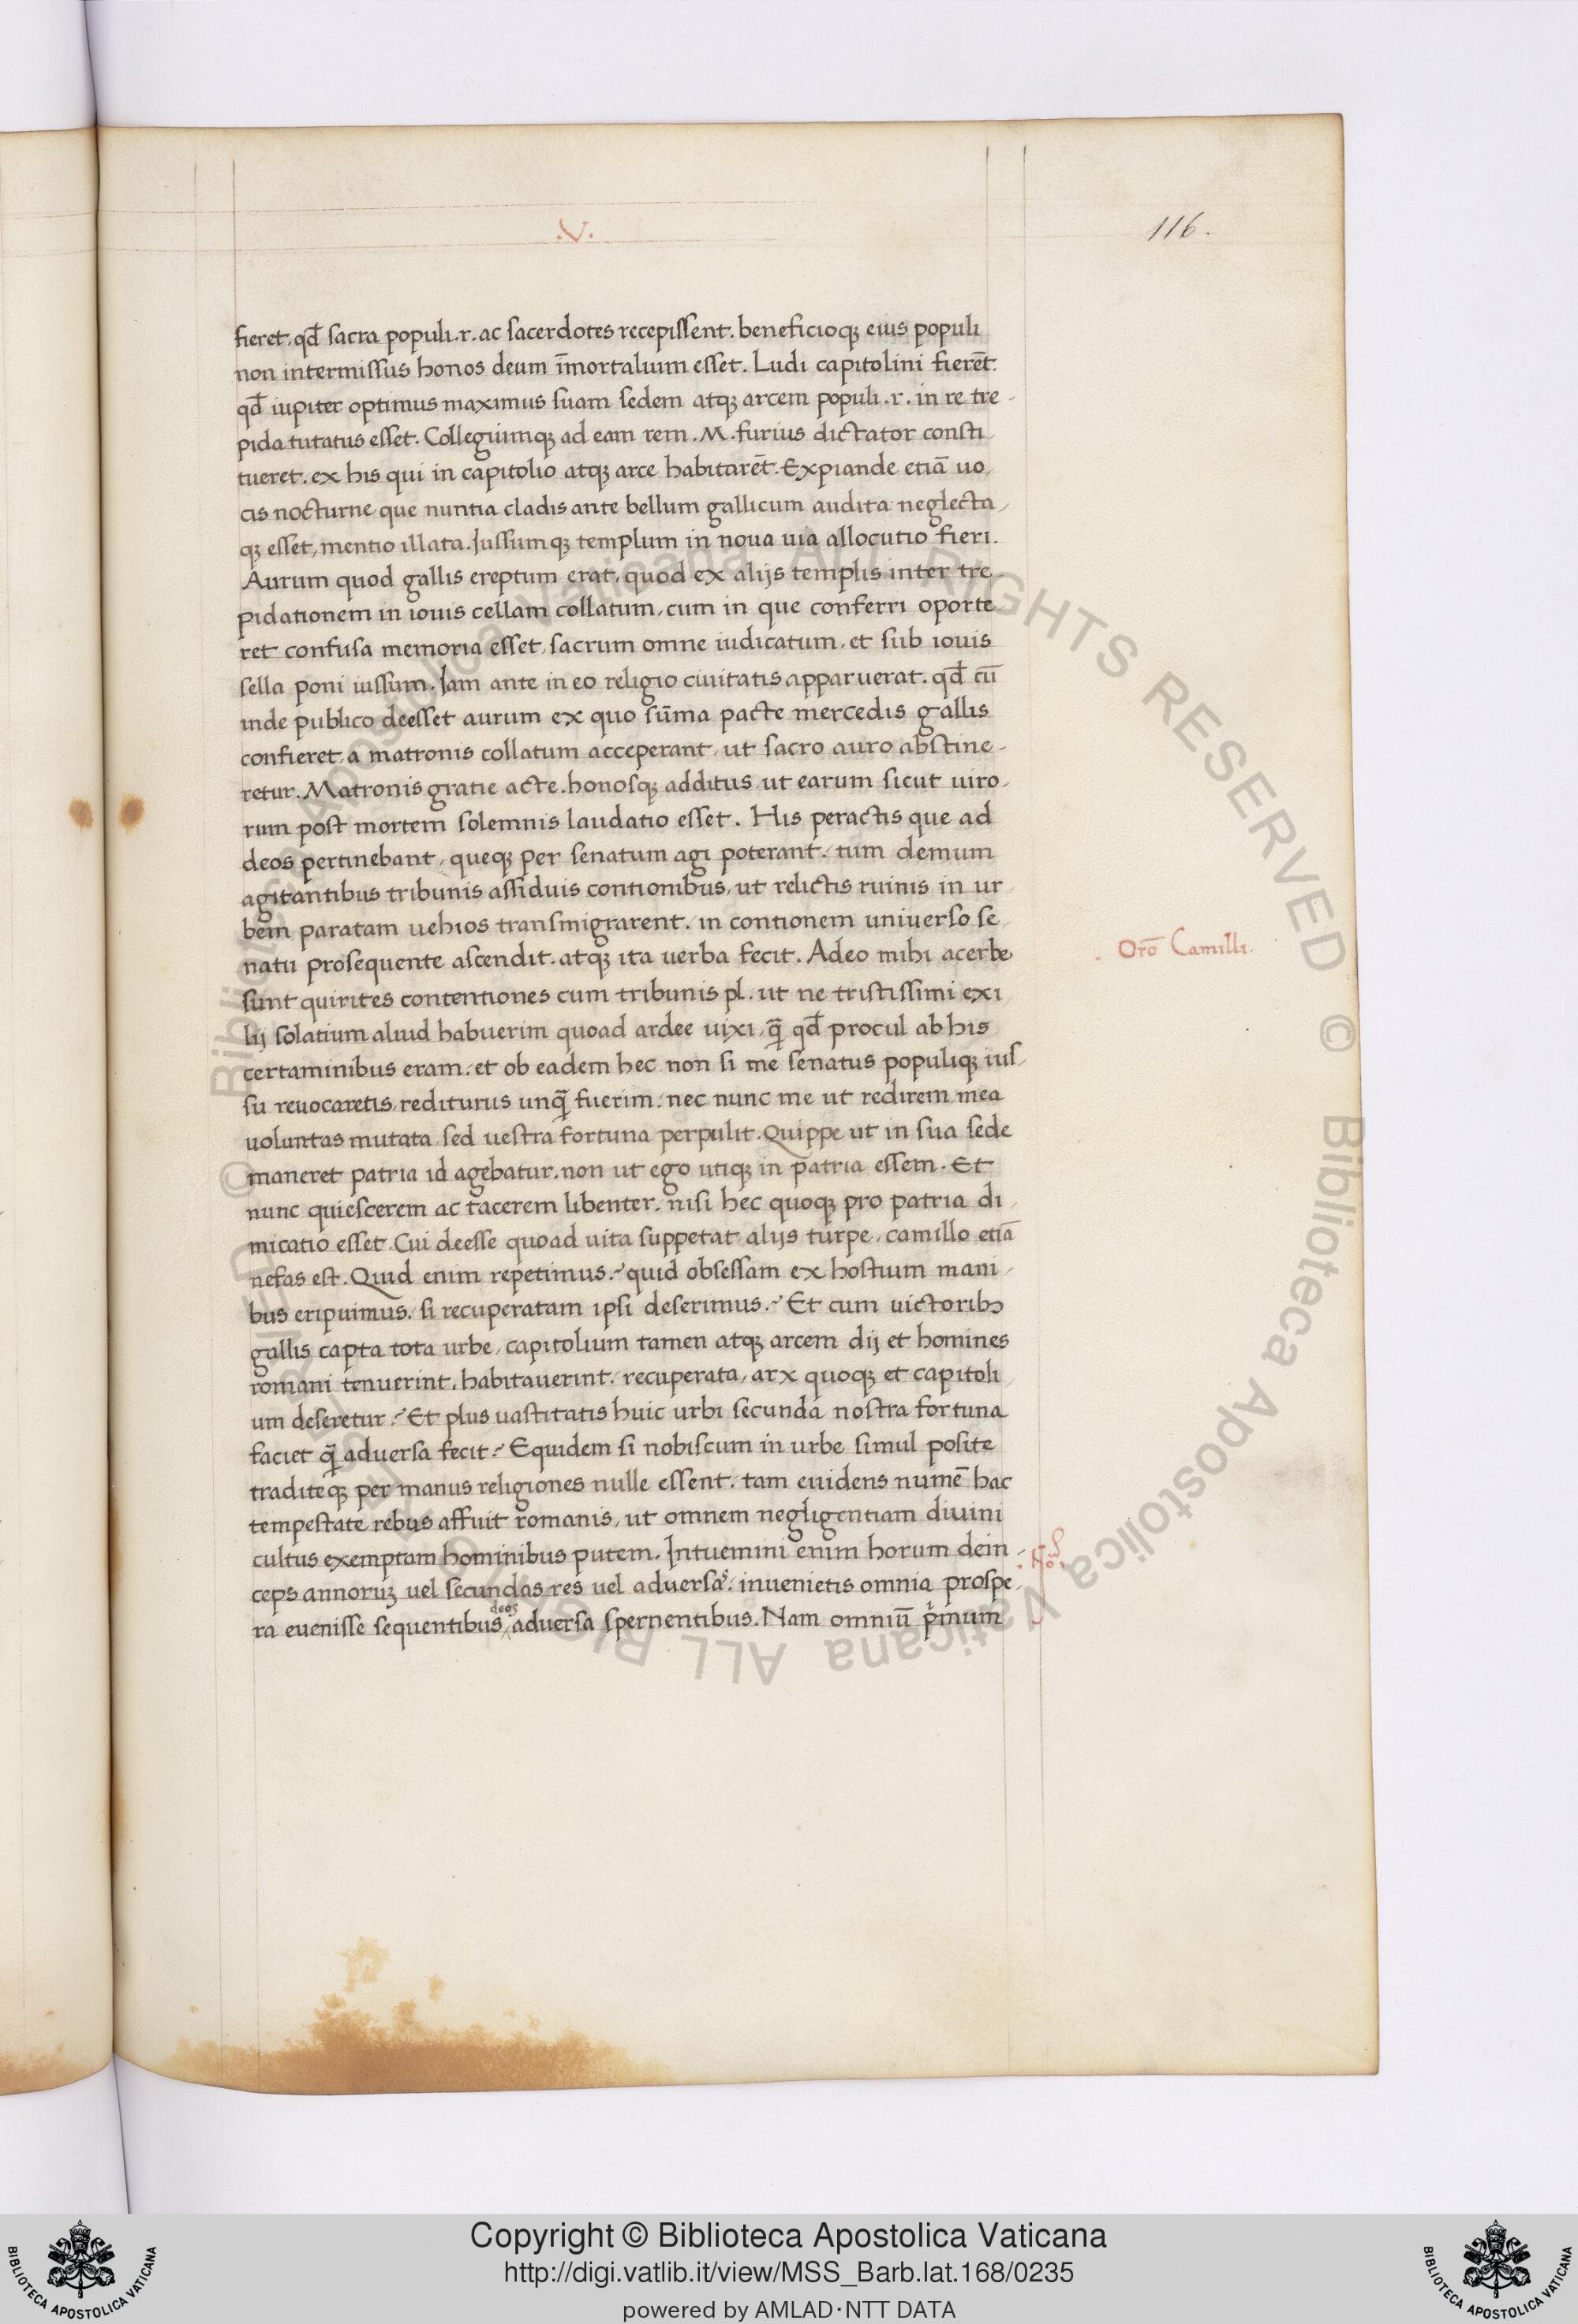 .V.
116.
fieret. qđ sacra populi .r. ac sacerdotes recepissent. beneficioqꝫ eius populi
non intermissus honos deum īmortalium esset. Ludi capitolini fierēt.
qđ iupiter optimus maximus suam sedem atqꝫ arcem populi .r. in re tre-
pida tutatus esset. Collegiumqꝫ ad eam rem .M. furius dictator consti
tueret. ex his qui in capitolio atqꝫ arce habitarēt. Expiande etiā uo
cis nocturne que nuntia cladis ante bellum gallicum audita neglecta
qꝫ esset, mentio illata. Jussumqꝫ templum in noua uia allocutio fieri.
Aurum quod gallis ereptum erat, quod ex alijs templis inter tre
pidationem in iouis cellam collatum, cum in que conferri oporte
ret confusa memoria esset, sacrum omne iudicatum, et sub iouis
sella poni iussum. Jam ante in eo religio ciuitatis apparuerat. qđ cū
inde publico deesset aurum ex quo sūma pacte mercedis gallis
confieret, a matronis collatum acceperant, ut sacro auro abstine-
retur. Matronis gratie acte. honosqꝫ additus ut earum sicut uiro
rum post mortem solemnis laudatio esset. His peractis que ad
deos pertinebant, queqꝫ per senatum agi poterant. tum demum
agitantibus tribunis assiduis contionibus, ut relictis ruinis in ur
bem paratam uehios transmigrarent. in contionem uniuerso se
natu prosequente ascendit. atqꝫ ita uerba fecit. Adeo mihi acerbe
sunt quirites contentiones cum tribunis pl. ut ne tristissimi exi
lij solatium aliud habuerim quoad ardee uixi, q̄ qđ procul ab his
certaminibus eram. et ob eadem hec non si me senatus populiqꝫ ius
su reuocaretis, rediturus unq̄ fuerim. nec nunc me ut redirem mea
uoluntas mutata sed uestra fortuna perpulit. Quippe ut in sua sede
maneret patria id agebatur. non ut ego utiqꝫ in patria essem. Et
nunc quiescerem ac tacerem libenter. nisi hec quoqꝫ pro patria di
micatio esset. Cui deesse quoad uita suppetat alijs turpe, camillo etiā
nefas est. Quid enim repetimus? quid obsessam ex hostium mani
bus eripuimus. si recuperatam ipsi deserimus? Et cum uictoribꝫ
gallis capta tota urbe, capitolium tamen atqꝫ arcem dij et homines
romani tenuerint, habitauerint. recuperata, arx quoqꝫ et capitoli
um deseretur? Et plus uastitatis huic urbi secunda nostra fortuna
faciet q̄ aduersa fecit? Equidem si nobiscum in urbe simul posite
traditeqꝫ per manus religiones nulle essent. tam euidens numē hac
tempestate rebus affuit romanis, ut omnem negligentiam diuini
cultus exemptam hominibus putem. Intuemini enim horum dein-
ceps annoruꝫ uel secundas res uel aduersas. inuenietis omnia prospe
ra euenisse sequentibus deos aduersa spernentibus. Nam omniū pͥmum
Orō Camilli.
Copyright © Biblioteca Apostolica Vaticana
http://digi.vatlib.it/view/MSS_Barb.lat.168/0235
powered by AMLAD·NTT DATA
BIBLIOTECA APOSTOLICA VATICANA
BIBLIOTECA APOSTOLICA VATICANA
© Biblioteca Apostolica Vaticana ALL RIGHTS RESERVED © Biblioteca Apostolica Vaticana ALL RIGHTS RESERVED